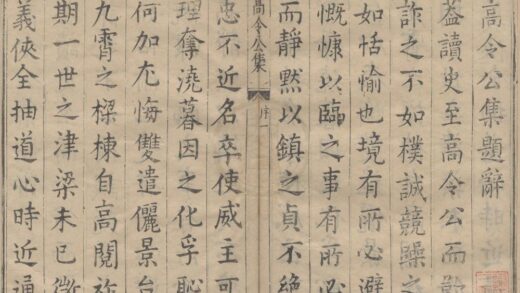 高令公集題辭
葢讀史至高令公而歎
詐之不如樸誠競躁之
如恬愉也境有所必避
慨慷以臨之事有所必
而靜默以鎮之貞不絶
高令公集 序 一
忠不近名卒使威主可
理奪澆暮因之化孚恥
何加尤悔雙遣儷景台
九霄之樑棟自高閱
期一世之津梁未已微
義俠全抽道心時近通